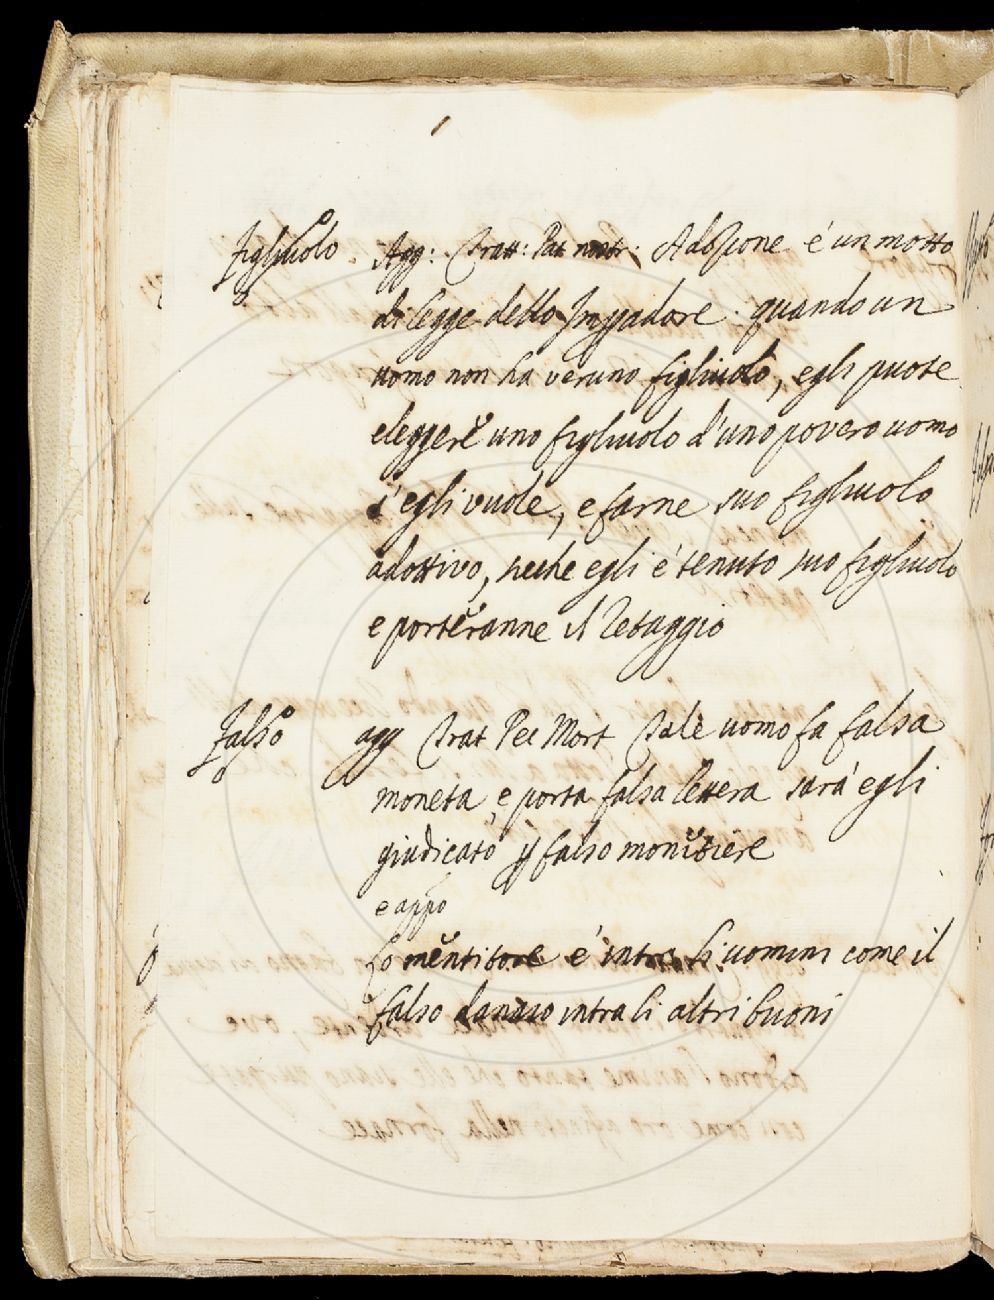 Figliuolo Agg: Tratt: Pat nostr: Adozione é un motto
di legge dello Imppadore. quando un
uomo non ha veruno figliuolo, egli puote
eleggere uno figliuolo d'uno povero uomo
s'egli vuole, e farne suo figliuolo
adottivo, sicche egli é tenuto suo figliuolo
e porteranne il Retaggio
Falso agg Trat Pec Mort Tale uomo fa falsa
moneta, e porta falsa lettera sará egli
giudicato p falso monitiere
e appo
Lo mentitore é intra li uomini come il
falso danaio intra li altri buoni